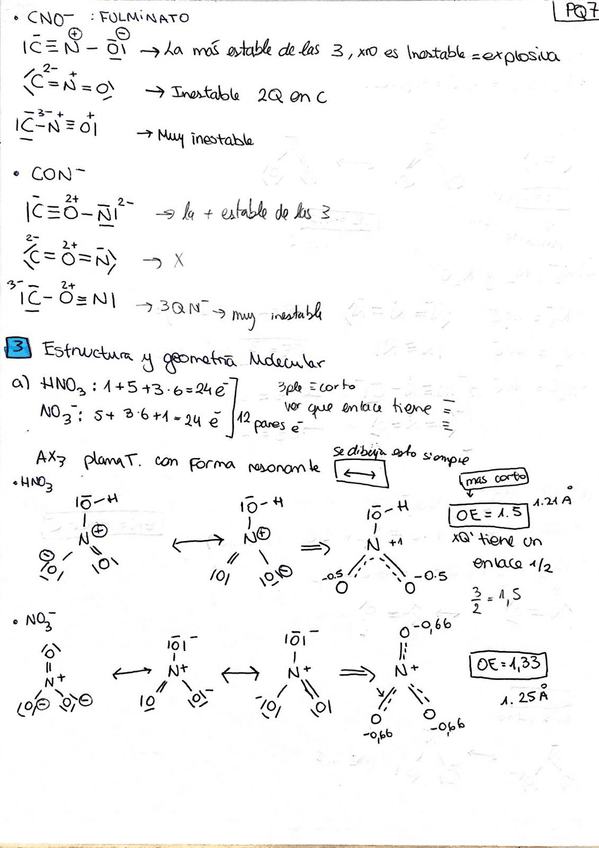 PQ7
• CNO⁻ : FULMINATO
|C̄≡N⊕–Ō|⊖ → La más estable de las 3, xro es Inestable = explosiva
C²⁻=N⁺=O → Inestable 2Q en C
|C³⁻–N⁺≡O⁺| → Muy inestable
• CON⁻
|C̄≡O²⁺–N̄|²⁻ → la + estable de los 3
C²⁻=O²⁺=N⁻ → X
³⁻|C̄–O²⁺≡N| → 3Q N⁻ → muy inestable
3 Estructura y geometría Molecular
a) HNO₃ : 1+5+3·6=24 e⁻
NO₃⁻ : 5+3·6+1=24 e⁻
12 pares e⁻
3ple ≡ corto
ver que enlace tiene = ≡
AX₃ plana T. con forma resonante ↔
se dibuja esto siempre
• HNO₃
|Ō–H N⊕ |O|⊖ |O| ↔ |Ō–H N⊕ |O| |O|⊖ ⇒ |Ō–H N +1 -0.5 O O -0.5
mas corto
OE = 1.5 1.21 Å
xq' tiene un
enlace 1/2
3/2 = 1,5
• NO₃⁻
|O| N+ |O|⊖ |O|⊖ ↔ |Ō|⁻ N+ |O |O|⁻ ↔ |Ō|⁻ N+ ⁻|O| |O| ⇒ O -0,66 N+ O -0,66 O -0,66
OE = 1,33
1.25 Å